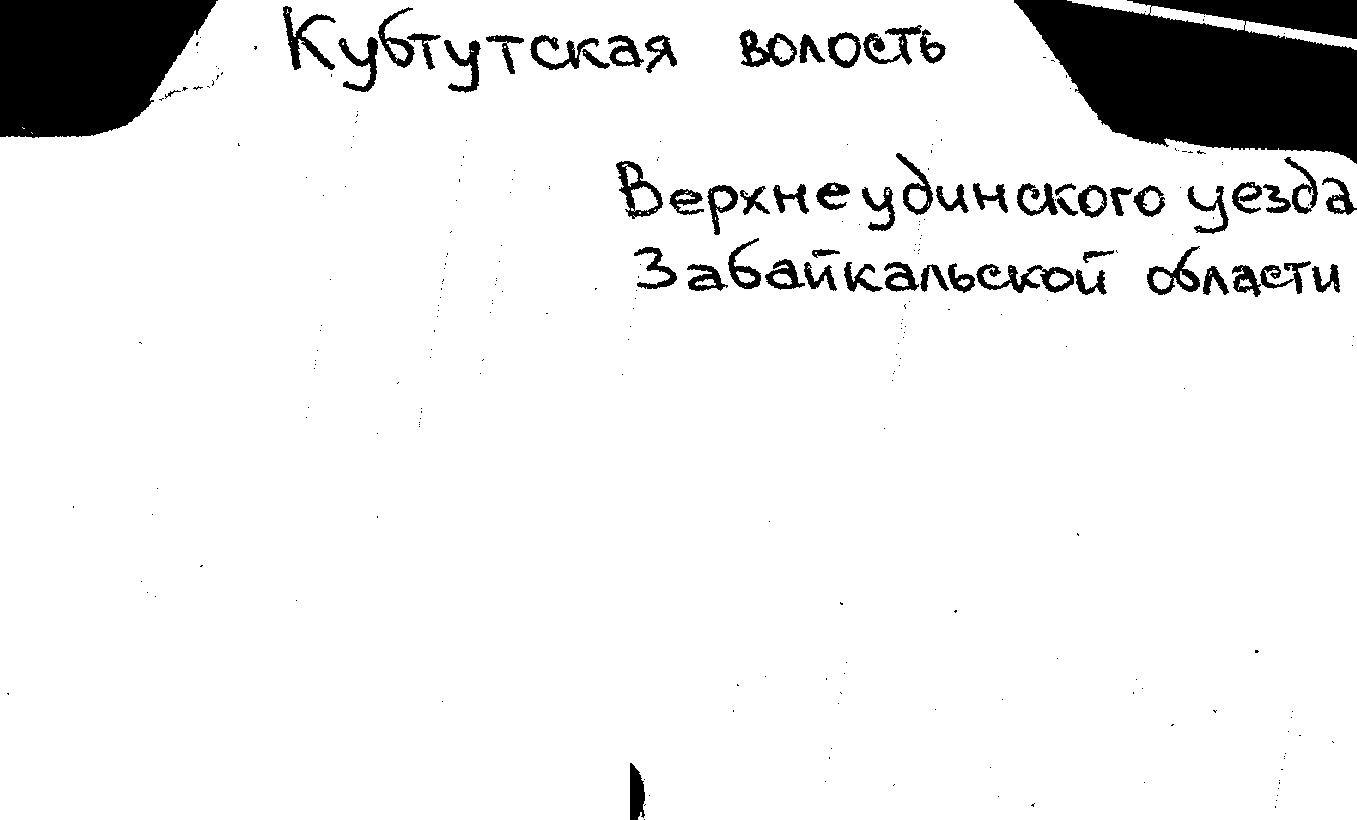 Кубтутская волость
Верхнеудинского уезда
Забайкальской области